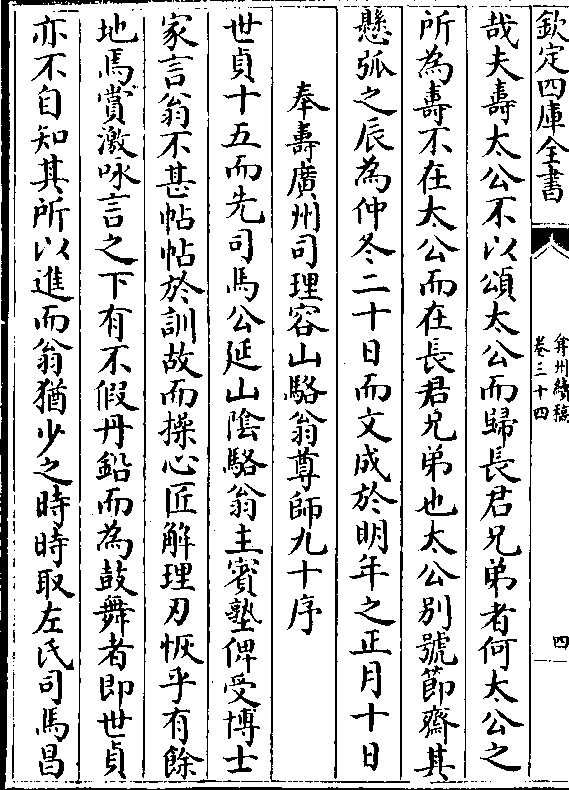 欽定四庫全書
弇州續稿
卷三十四
四
哉夫壽太公不以頌太公而歸長君兄弟者何太公之
所為壽不在太公而在長君兄弟也太公別號節齋其
懸弧之辰為仲冬二十日而文成於明年之正月十日
奉壽廣州司理容山駱翁尊師九十序
世貞十五而先司馬公延山陰駱翁主賓塾俾受博士
家言翁不甚帖帖於訓故而操心匠解理刃恢乎有餘
地焉賞激咏言之下有不假丹鉛而為鼓舞者即世貞
亦不自知其所以進而翁猶少之時時取左氏司馬昌